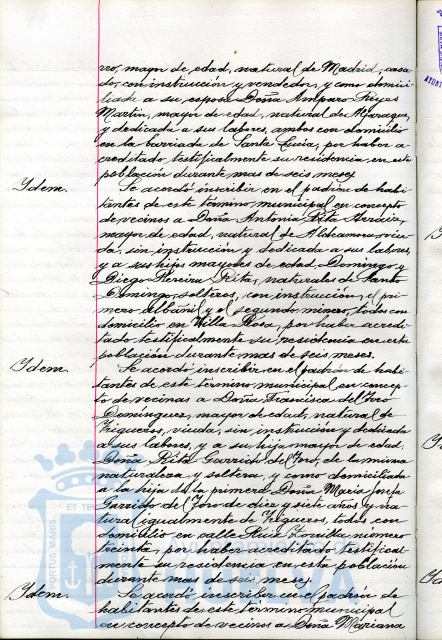 rro, mayor de edad, natural de Madrid, casa
do, con instrucción y vendedor, y como domici
liada a su esposa Doña Amparo Reyes
Martin, mayor de edad, natural de
y dedicada a sus labores, ambos con domicilio
en la barriada de Santa Lucia, por haber a-
creditado testificalmente su residencia en esta
población durante mas de seis meses.
Ydem. Se acordó inscribir en el padrón de habi
tantes de este término municipal en concepto
de vecinos a Doña Antonia Rita Heredia,
mayor de edad, natural de viu
da, sin instrucción y dedicada a sus labores,
y a sus hijos mayores de edad, Domingo y
Diego Pereira Rita, naturales de Santo
Domingo, solteros, con instrucción, el pri
mero albañil y el segundo minero, todos con
domicilio en Villa Rosa, por haber acredi
tado testificalmente su residencia en esta
población durante mas de seis meses.
Ydem. Se acordó inscribir en el padrón de habi
tantes de este término municipal en concep
to de vecinas a Doña Francisca del Toro
Dominguez, mayor de edad, natural de
Trigueros, viuda, sin instrucción y dedicada
a sus labores, y a su hija mayor de edad
Doña Rita Garrido del Toro, de la misma
naturaleza y soltera, y como domiciliada
a la hija de la primera Doña Maria Josefa
Garrido del Toro de diez y siete años y na
tural igualmente de Trigueros, todas con
domicilio en calle Ruiz Zorrilla número
treinta, por haber acreditado testifical
mente su residencia en esta población
durante mas de seis meses.
Ydem. Se acordó inscribir en el padrón de
habitantes de este término municipal
en concepto de vecinos a Doña Mariana
PORTUS MARIS ET TE